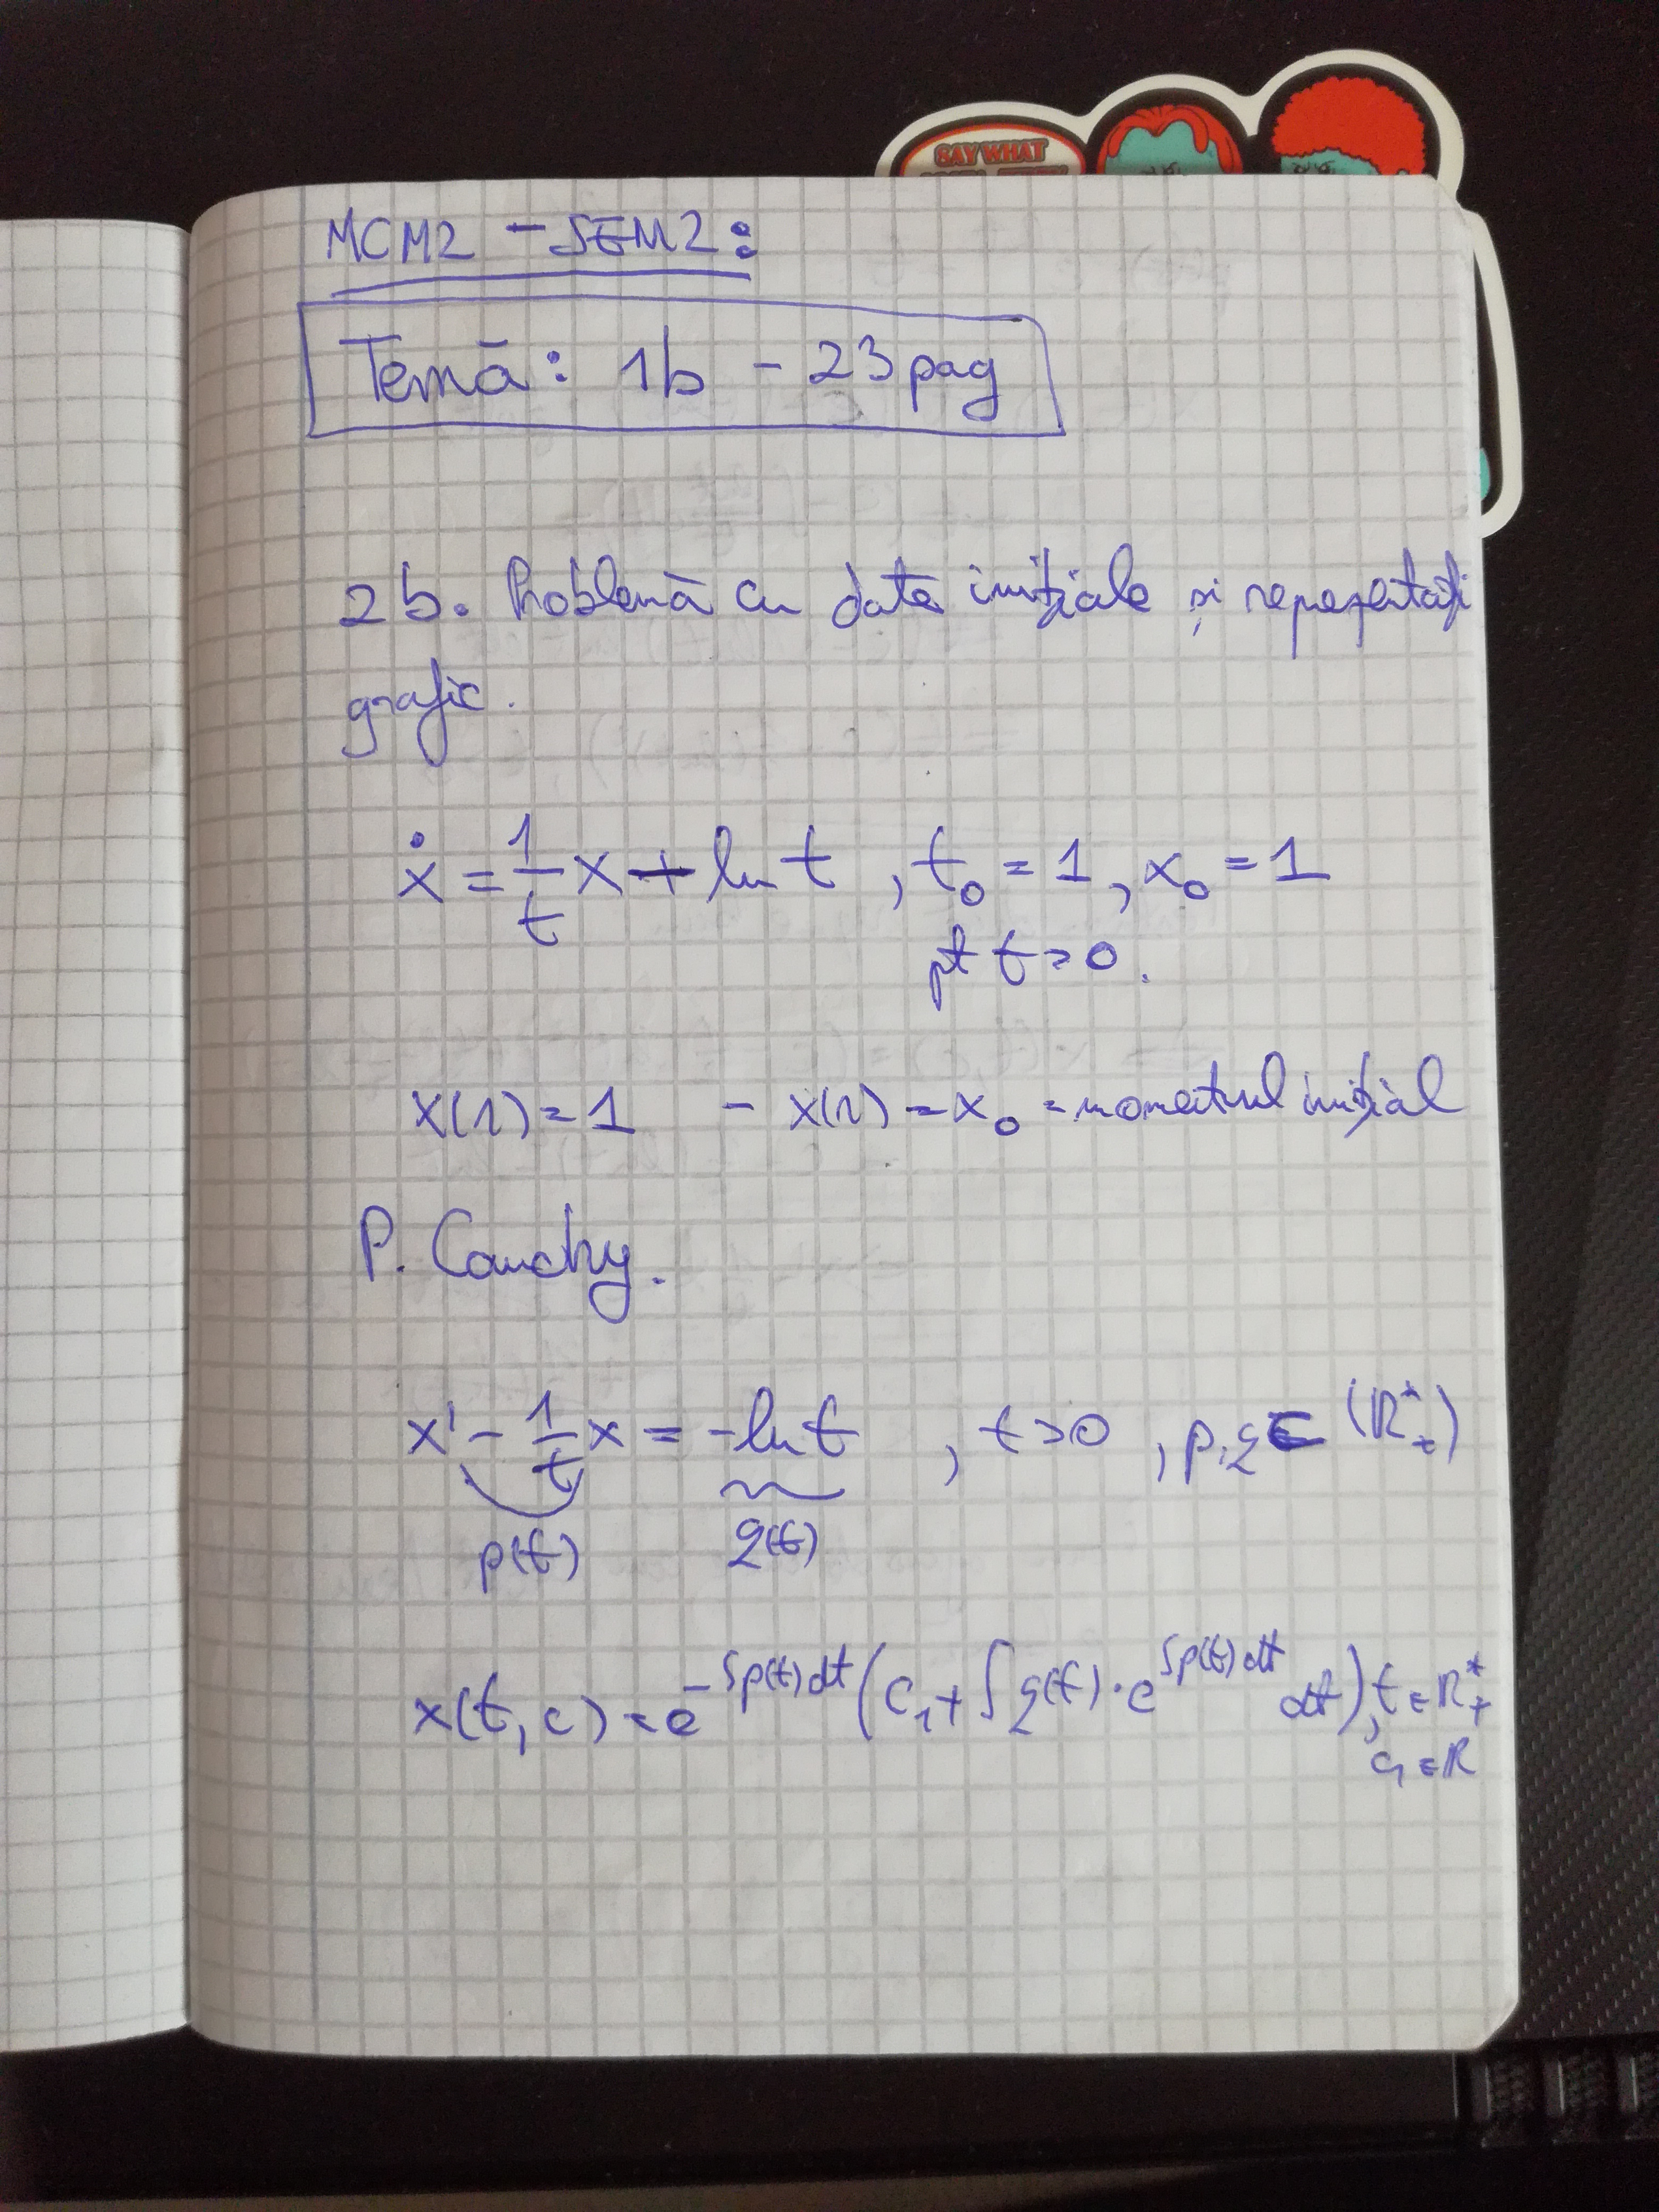 SAY WHAT
MCM2 - SEM2:
Temă: 1b - 23 pag
2b. Problemă cu date inițiale și reprezentați
grafic.
ẋ = 1/t x + ln t , t₀ = 1, x₀ = 1
pt t > 0.
x(1) = 1 - x(1) = x₀ = momentul inițial
P. Cauchy.
x' - 1/t x = -ln t , t > 0 , p, q ∈ (ℝ*₊)
p(t) q(t)
x(t, c) = e^(-∫p(t)dt) (c₁ + ∫q(t)·e^(∫p(t)dt) dt), t ∈ ℝ*₊
c₁ ∈ ℝ